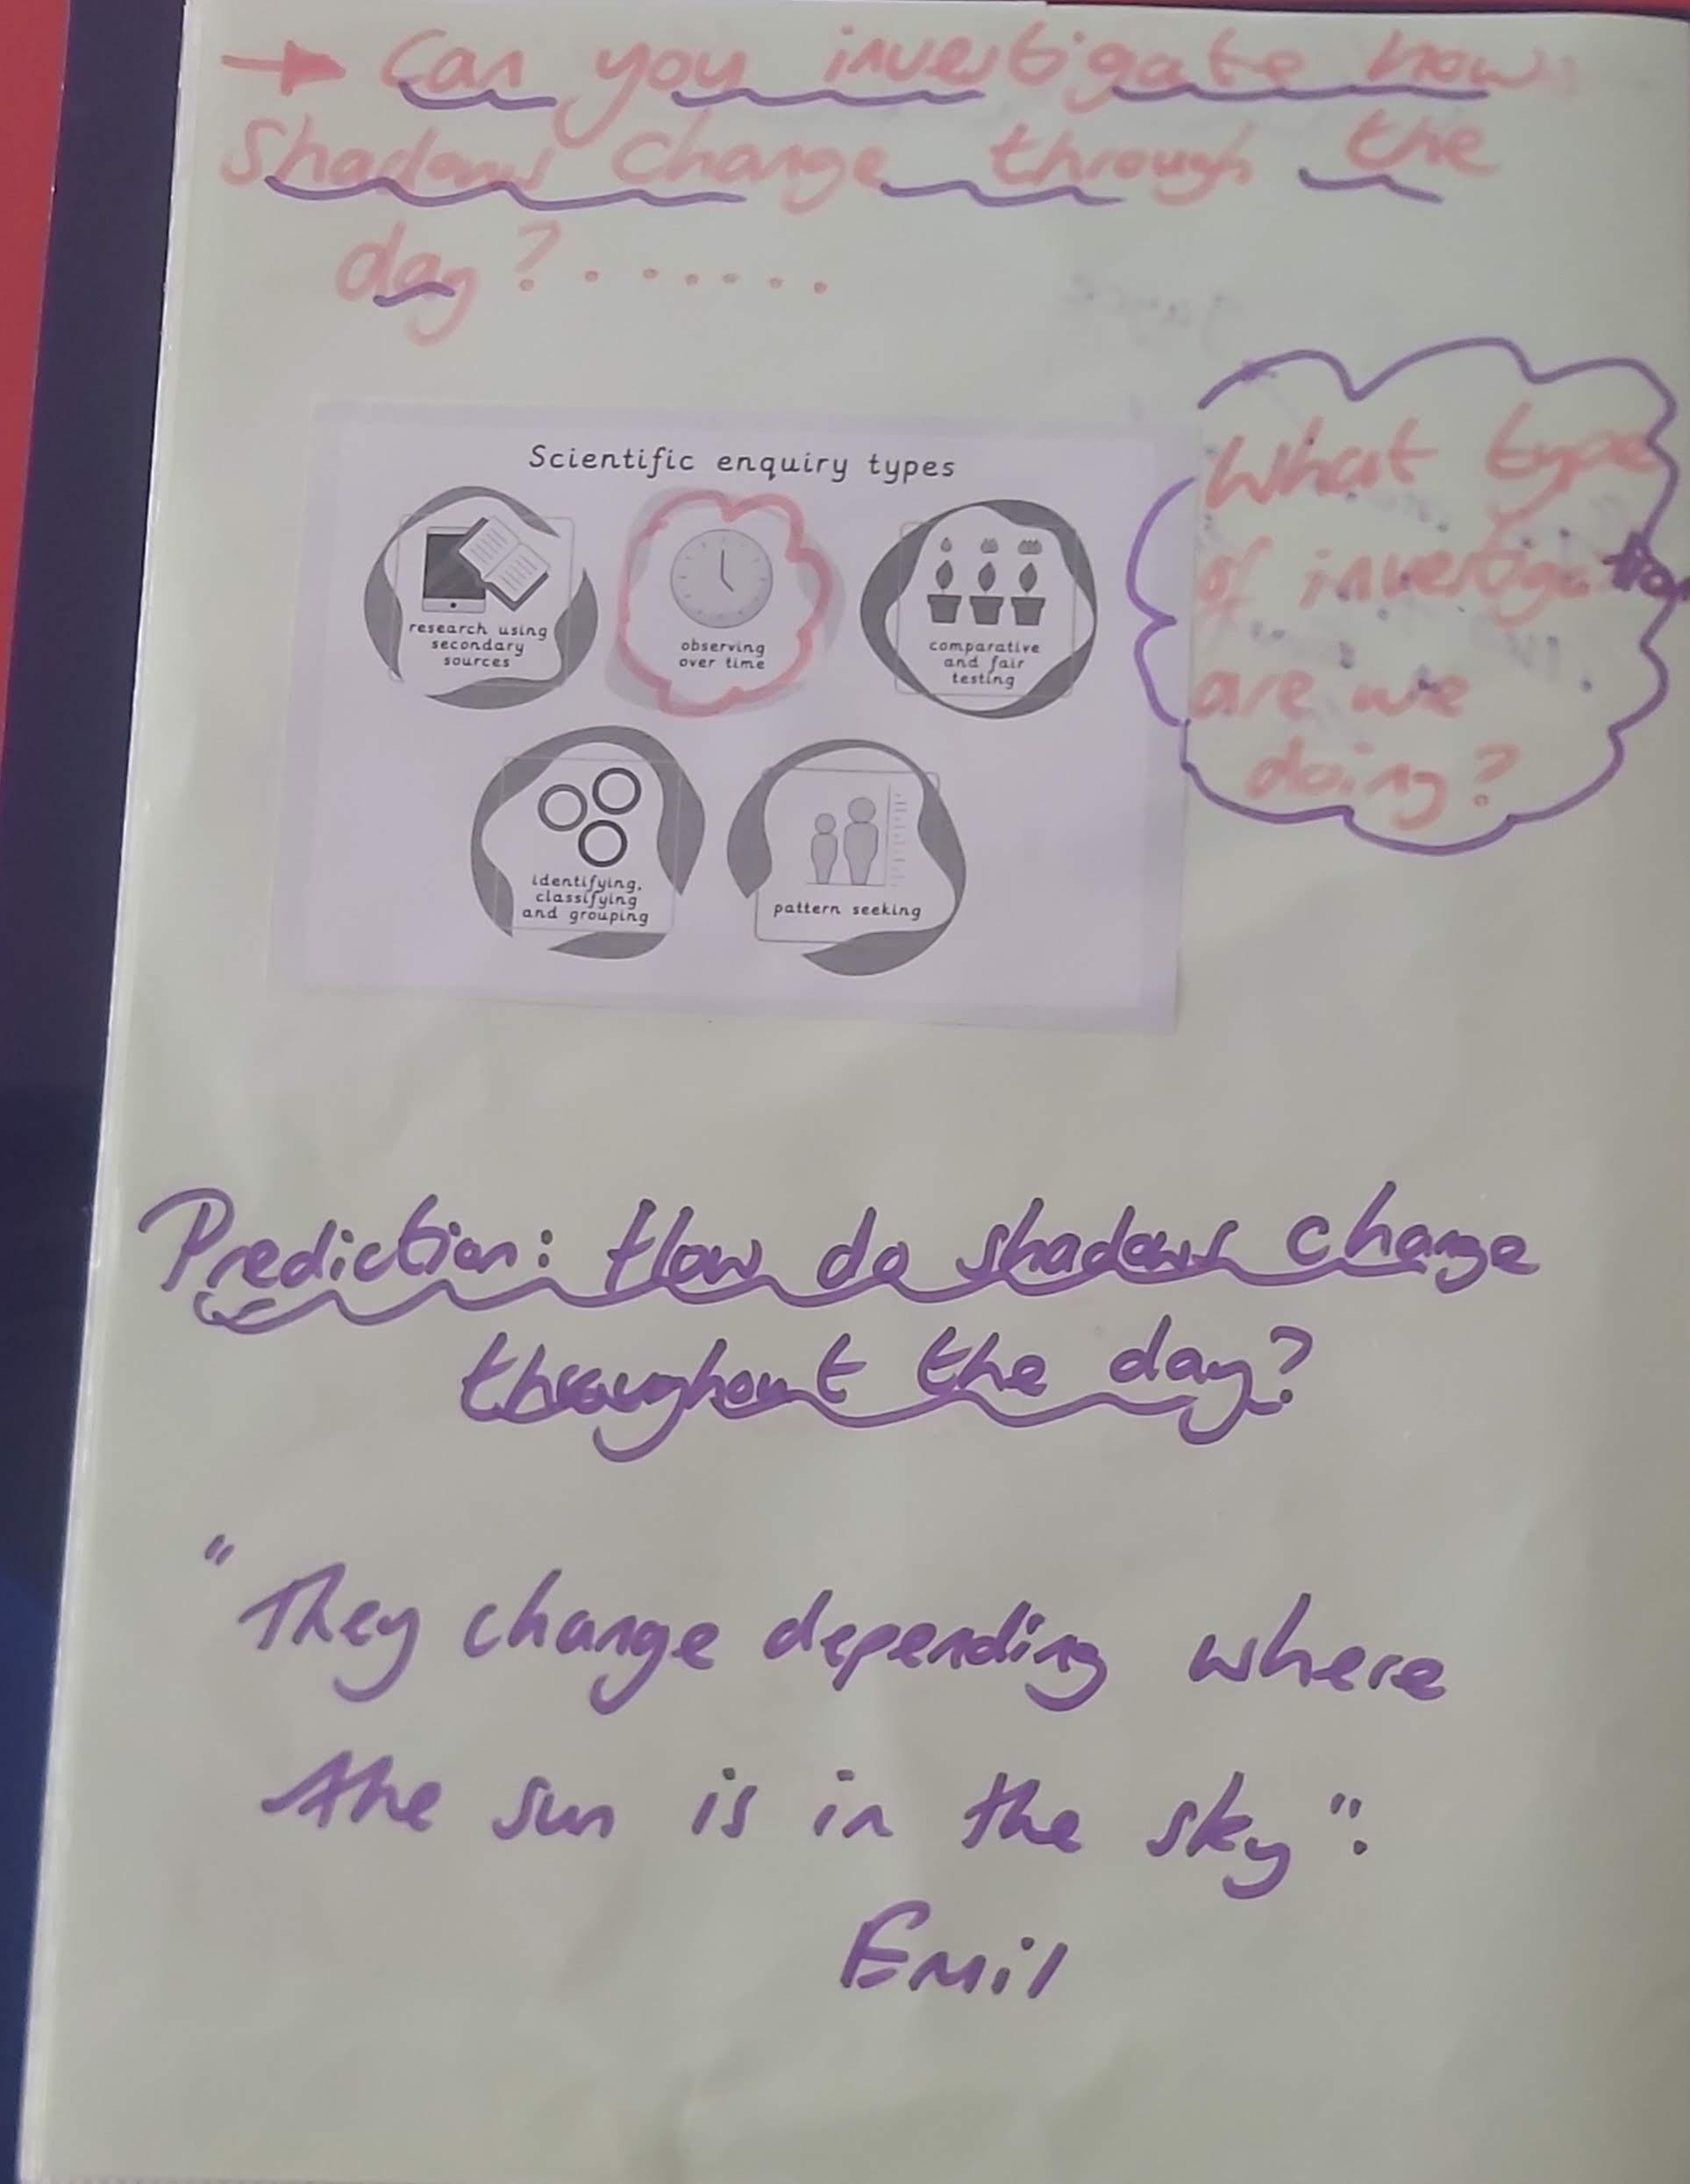 → Can you investigate how
shadows change through the
day? . . . . . .
Scientific enquiry types
research using
secondary
sources
observing
over time
comparative
and fair
testing
identifying,
classifying
and grouping
pattern seeking
What type
of investigation
are we
doing?
Prediction: How do shadows change
throughout the day?
"They change depending where
the sun is in the sky".
Emil